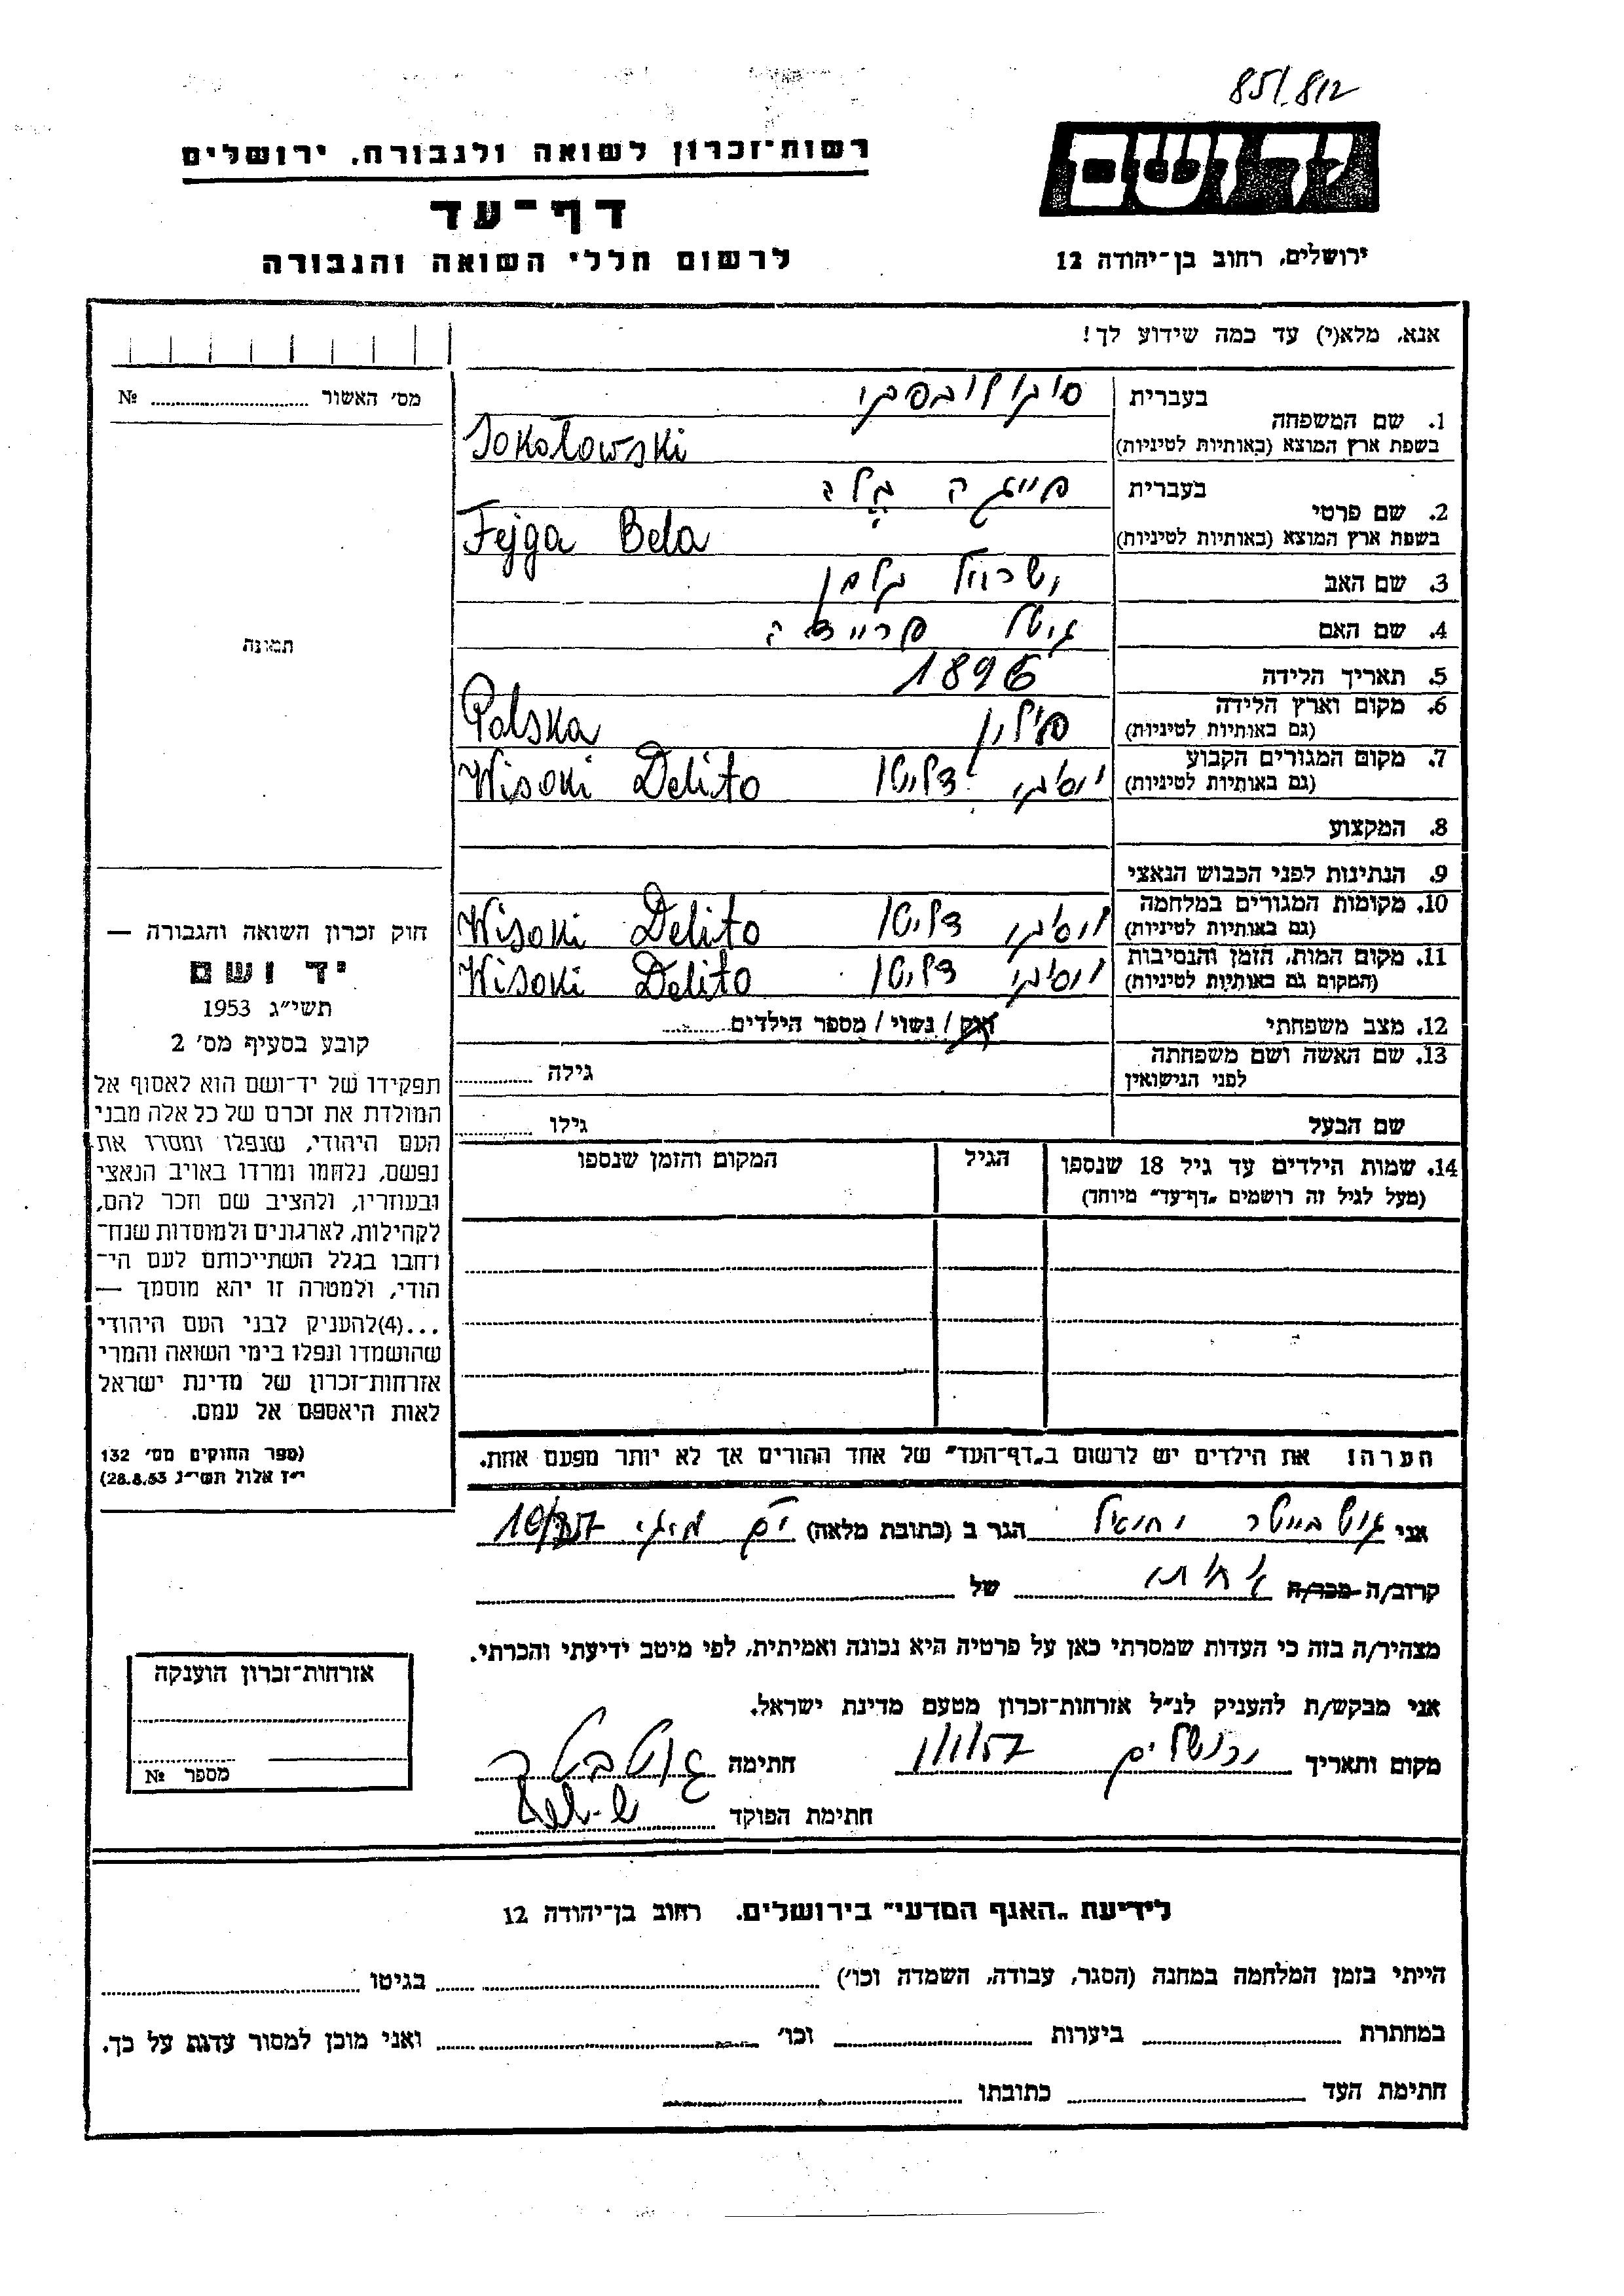 851/812
רשות־זכרון לשואה ולגבורה, ירושלים
יד ושם
דף־עד
לרשום חללי השואה והגבורה
ירושלים, רחוב בן־יהודה 12
אנא, מלא(י) עד כמה שידוע לך!
מס׳ האשור № 
בעברית סוקולובסקי
1. שם המשפחה
בשפת ארץ המוצא (באותיות לטיניות) Sokołowski
בעברית פייגה בלה
2. שם פרטי
בשפת ארץ המוצא (באותיות לטיניות) Fejga Bela
3. שם האב ישראל זלמן
4. שם האם גיטל פריידה
5. תאריך הלידה 1896
6. מקום וארץ הלידה
(גם באותיות לטיניות) פולין Polska
7. מקום המגורים הקבוע
(גם באותיות לטיניות) ויסוקי דליטו Wisoki Delito
8. המקצוע
9. הנתינות לפני הכבוש הנאצי
10. מקומות המגורים במלחמה
(גם באותיות לטיניות) ויסוקי דליטו Wisoki Delito
11. מקום המות, הזמן והנסיבות
(המקום גם באותיות לטיניות) ויסוקי דליטו Wisoki Delito
12. מצב משפחתי רווק / נשוי / מספר הילדים
13. שם האשה ושם משפחתה
לפני הנישואין גילה
שם הבעל גילו
14. שמות הילדים עד גיל 18 שנספו
(מעל לגיל זה רושמים „דף־עד״ מיוחד)
הגיל
המקום והזמן שנספו
תמונה
חוק זכרון השואה והגבורה —
יד ושם
תשי״ג 1953
קובע בסעיף מס׳ 2
תפקידו של יד־ושם הוא לאסוף אל
המולדת את זכרם של כל אלה מבני
העם היהודי, שנפלו ומסרו את
נפשם, נלחמו ומרדו באויב הנאצי
ובעוזריו, ולהציב שם וזכר להם,
לקהילות, לארגונים ולמוסדות שנח־
רבו בגלל השתייכותם לעם הי־
הודי, ולמטרה זו יהא מוסמך —
...(4)להעניק לבני העם היהודי
שהושמדו ונפלו בימי השואה והמרי
אזרחות־זכרון של מדינת ישראל
לאות היאספם אל עמם.
(ספר החוקים מס׳ 132
י״ז אלול תשי״ג 28.8.53)
הערה: את הילדים יש לרשום ב„דף־העד״ של אחד ההורים אך לא יותר מפעם אחת.
אני גוטבייטר יחיאל הגר ב (כתובת מלאה)
קרוב/ה מכר/ה אחיה של
מצהיר/ה בזה כי העדות שמסרתי כאן על פרטיה היא נכונה ואמיתית, לפי מיטב ידיעתי והכרתי.
אני מבקש/ת להעניק לנ״ל אזרחות־זכרון מטעם מדינת ישראל.
מקום ותאריך ירושלים חתימה
חתימת הפוקד
אזרחות־זכרון הוענקה
מספר №
לידיעת „האגף המדעי״ בירושלים, רחוב בן־יהודה 12
הייתי בזמן המלחמה במחנה (הסגר, עבודה, השמדה וכו׳) בגיטו
במחתרת ביערות וכו׳ ואני מוכן למסור עדות על כך.
חתימת העד כתובתו